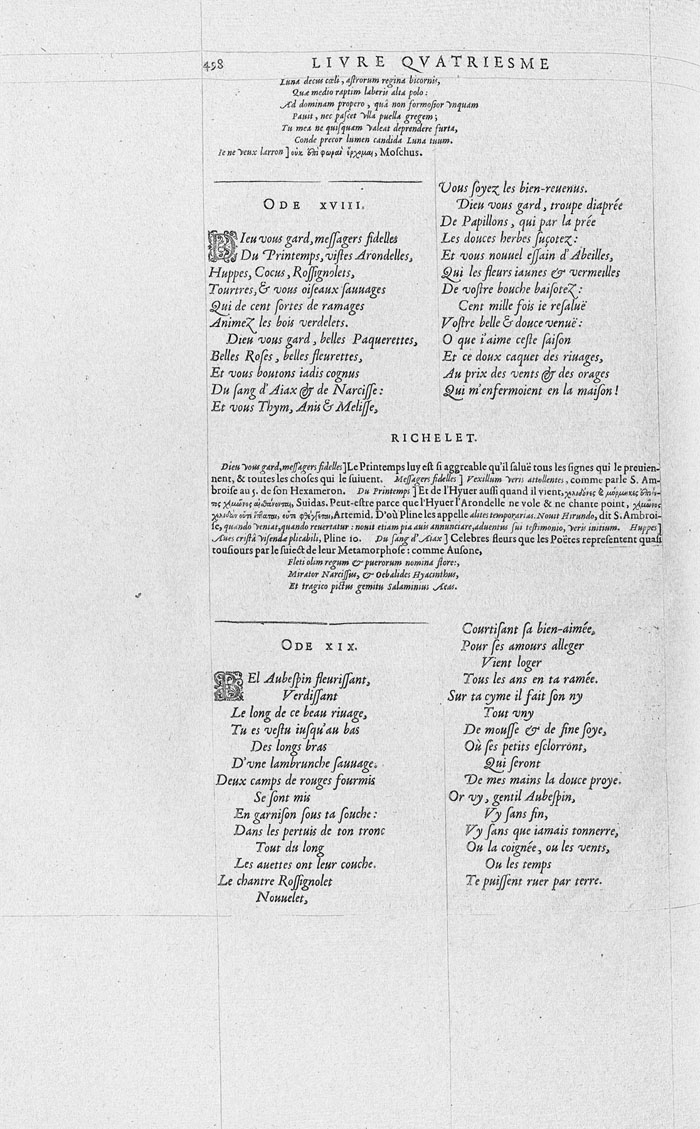 458 LIVRE QVATRIESME
Luna decus cœli, astrorum regina bicornis,
Quæ medio raptim laberis alta polo:
Ad dominam propero, quâ non formosior vnquam
Pauit, nec pascet vlla puella gregem;
Tu mea ne quisquam valeat deprendere furta,
Conde precor lumen candida Luna tuum.
Ie ne veux larron] οὐκ ἐπὶ φωρὰν ἔρχομαι, Moschus.
ODE XVIII.
DIeu vous gard, meſſagers fidelles
Du Printemps, viſtes Arondelles,
Huppes, Cocus, Roſſignolets,
Tourtres, & vous oiſeaux ſauuages
Qui de cent ſortes de ramages
Animez les bois verdelets.
Dieu vous gard, belles Paquerettes,
Belles Roſes, belles fleurettes,
Et vous boutons iadis cognus
Du ſang d'Aiax & de Narciſſe:
Et vous Thym, Anis & Meliſſe,
Vous ſoyez les bien-reuenus.
Dieu vous gard, troupe diaprée
De Papillons, qui par la prée
Les douces herbes ſuçotez:
Et vous nouuel eſſain d'Abeilles,
Qui les fleurs iaunes & vermeilles
De voſtre bouche baiſotez:
Cent mille fois ie reſaluë
Voſtre belle & douce venuë:
O que i'aime ceſte ſaiſon
Et ce doux caquet des riuages,
Au prix des vents & des orages
Qui m'enfermoient en la maiſon!
RICHELET.
Dieu vous gard, meſſagers fidelles] Le Printemps luy eſt ſi aggreable qu'il ſaluë tous les ſignes qui le preuien-
nent, & toutes les choſes qui le ſuiuent. Meſſagers fidelles] Vexillum veris attollentes, comme parle S. Am-
broiſe au 5. de ſon Hexameron. Du Printemps] Et de l'Hyuer auſſi quand il vient,
Suidas. Peut-eſtre parce que l'Hyuer l'Arondelle ne vole & ne chante point,
Artemid. D'où Pline les appelle alites temporarias. Nouit Hirundo, dit S. Ambroi-
ſe, quando veniat, quando reuertatur: nouit etiam pia auis annunciare, aduentus ſui teſtimonio, veris initium. Huppes]
Aues criſtâ viſendæ plicabili, Pline 10. Du ſang d'Aiax] Celebres fleurs que les Poëtes repreſentent quaſi
touſiours par le ſuiect de leur Metamorphoſe: comme Auſone,
Fleti olim regum & puerorum nomina flore:,
Mirator Narciſſus, & Oebalides Hyacinthus,
Et tragico pictus gemitu Salaminius Aeas.
ODE XIX.
BEl Aubeſpin fleuriſſant,
Verdiſſant
Le long de ce beau riuage,
Tu es veſtu iuſqu'au bas
Des longs bras
D'vne lambrunche ſauuage.
Deux camps de rouges fourmis
Se ſont mis
En garniſon ſous ta ſouche:
Dans les pertuis de ton tronc
Tout du long
Les auettes ont leur couche.
Le chantre Roſſignolet
Nouuelet,
Courtiſant ſa bien-aimée,
Pour ſes amours alleger
Vient loger
Tous les ans en ta ramée.
Sur ta cyme il fait ſon ny
Tout vny
De mouſſe & de fine ſoye,
Où ſes petits eſclorront,
Qui ſeront
De mes mains la douce proye.
Or vy, gentil Aubeſpin,
Vy ſans fin,
Vy ſans que iamais tonnerre,
Ou la coignée, ou les vents,
Ou les temps
Te puiſſent ruer par terre.